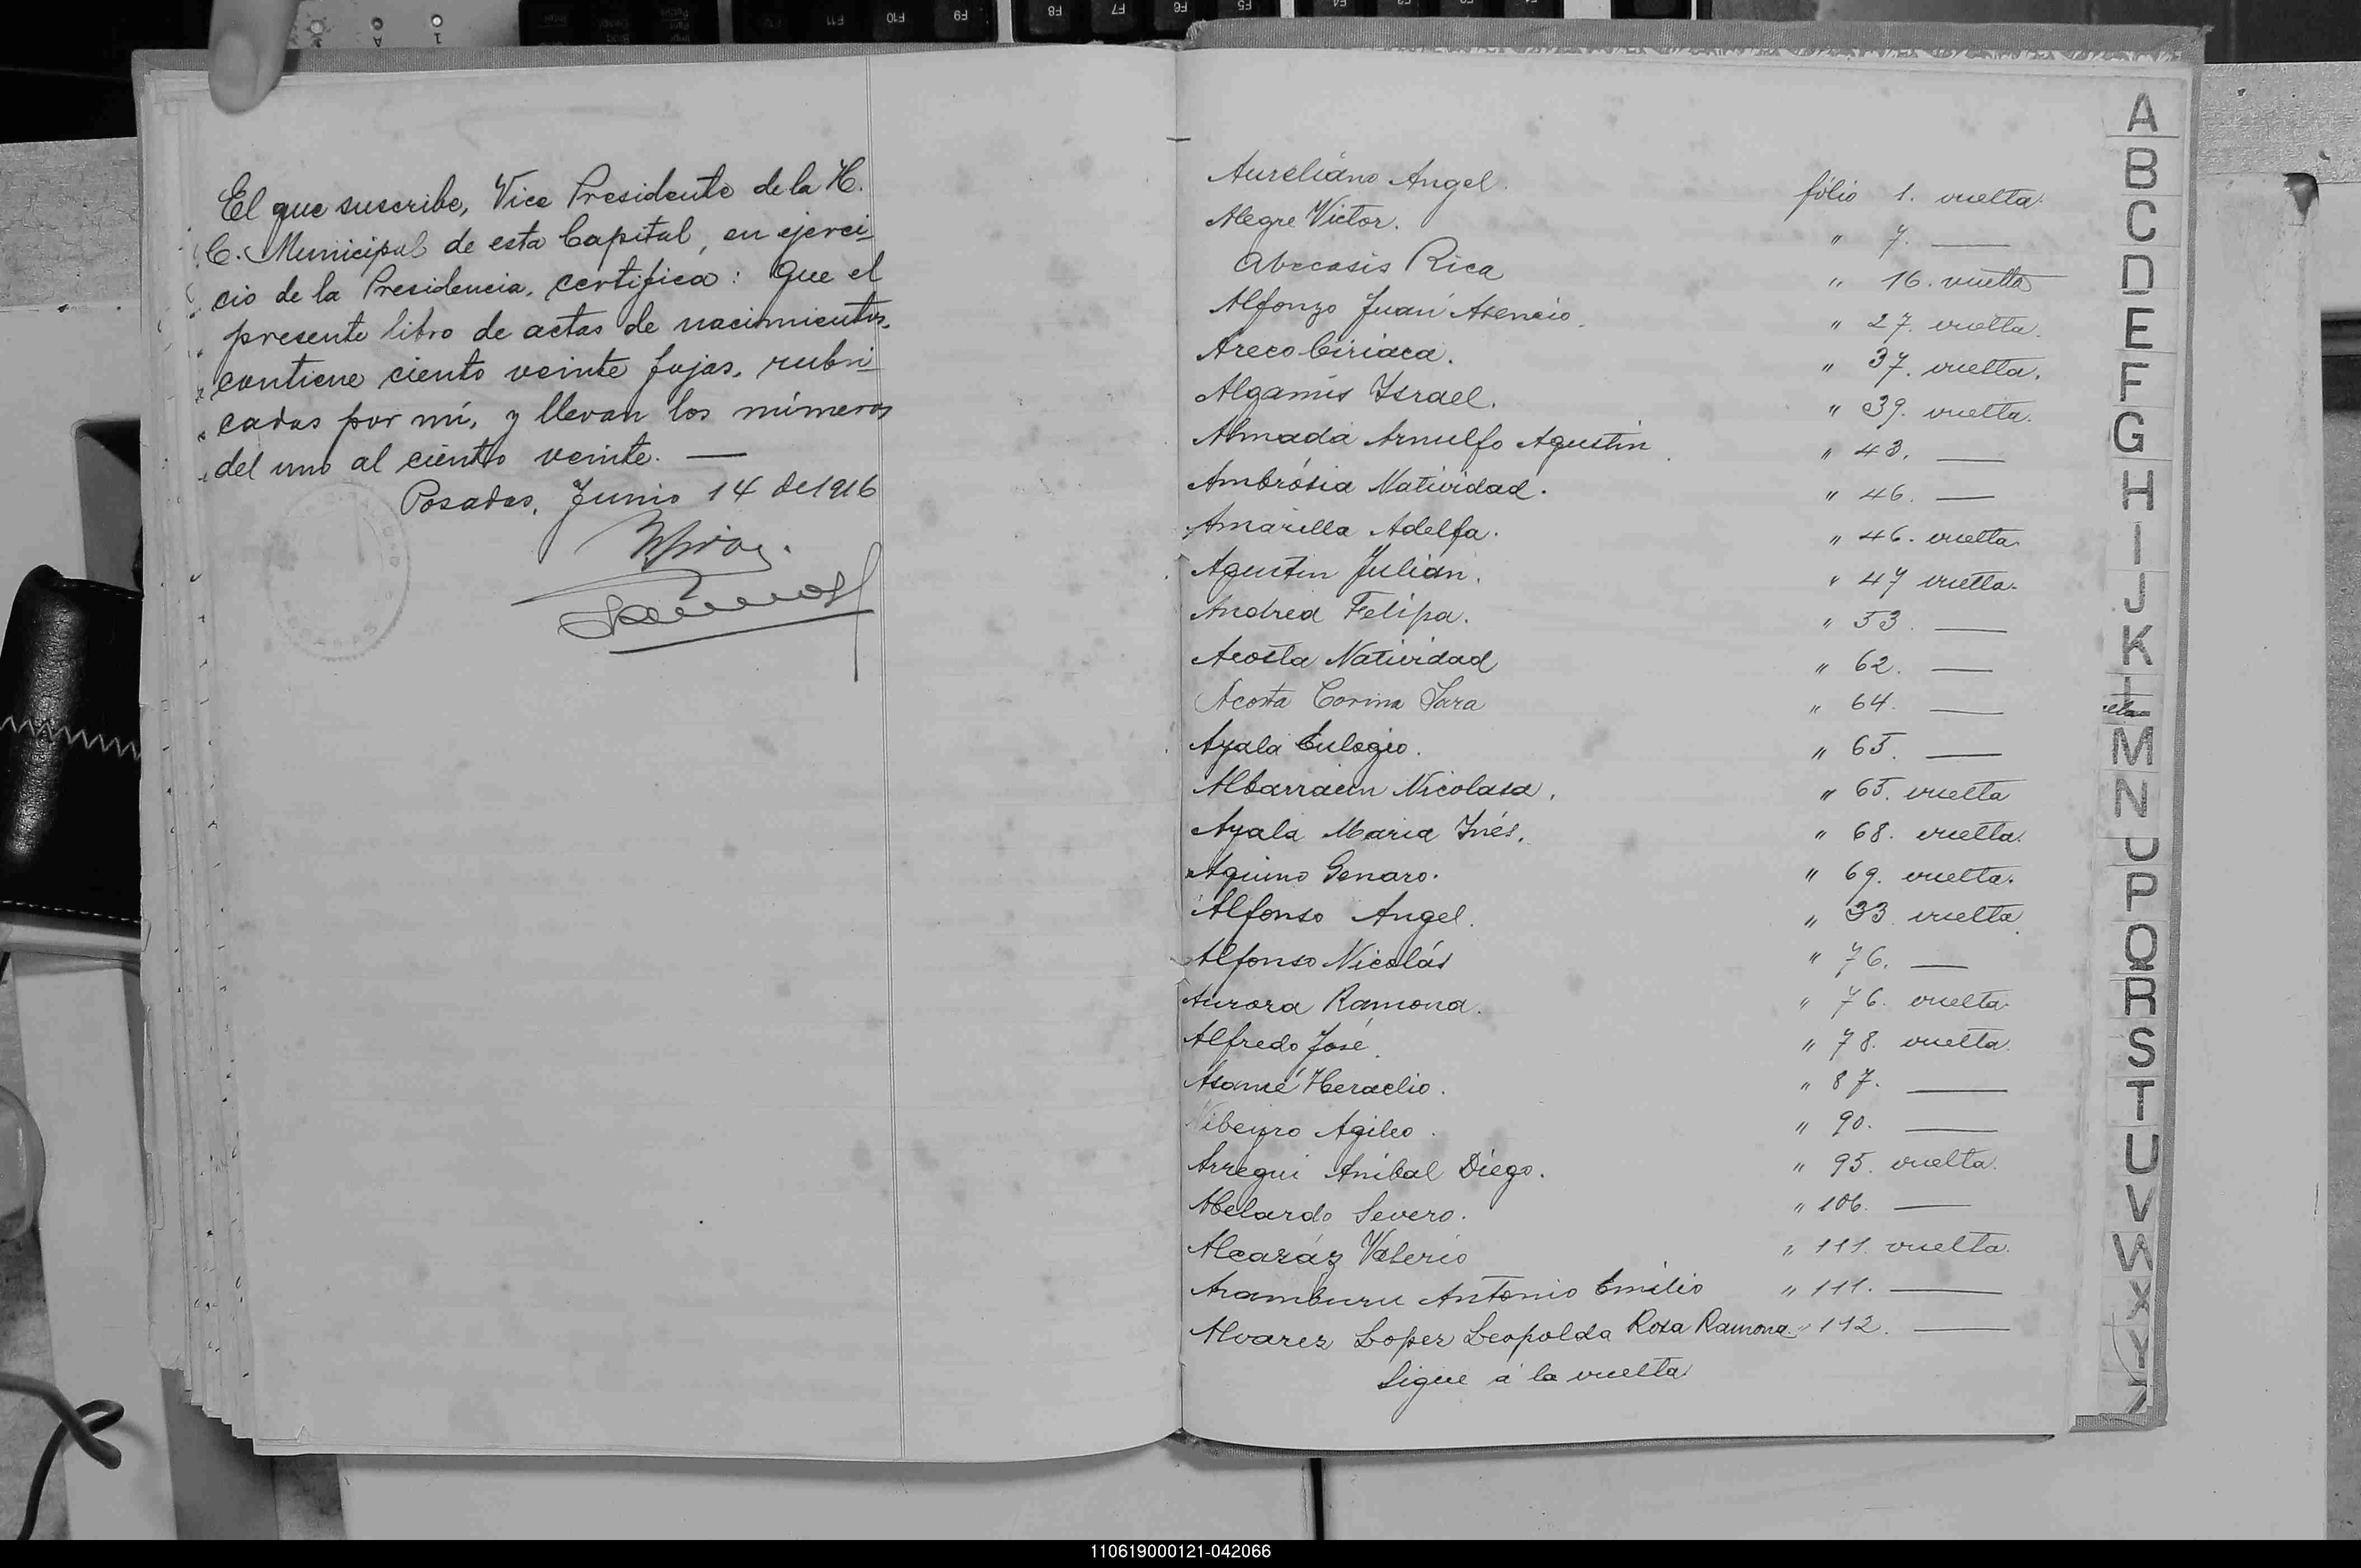 El que suscribe, Vice Presidente de la H.
C. Municipal de esta Capital, en ejerci-
cio de la Presidencia, certifica: Que el
presente libro de actas de nacimientos,
contiene ciento veinte fojas, rubri-
cadas por mí, y llevan los números
del uno al ciento veinte. —
Posadas, Junio 14 de 1916
Aureliano Angel. fólio 1. vuelta.
Alegre Victor. " 7. —
Abecasis Rica " 16. vuelta
Alfonzo Juan Asencio. " 27. vuelta.
Areco Ciriaca. " 37. vuelta.
Algamis Israel. " 39. vuelta.
Almada Arnulfo Agustin. " 43. —
Ambrósia Natividad. " 46. —
Amarilla Adelfa. " 46. vuelta.
Agustin Julian. " 47 vuelta.
Andrea Felipa. " 53. —
Acosta Natividad " 62. —
Acosta Corina Sara " 64. —
Ayala Eulogio. " 65. —
Albarracin Nicolasa. " 65. vuelta
Ayala Maria Inés. " 68. vuelta.
Aquino Genaro. " 69. vuelta.
Alfonso Angel. " 33 vuelta.
Alfonso Nicolás " 76. —
Aurora Ramona. " 76. vuelta.
Alfredo José. " 78. vuelta.
Heraclio. " 87. —
Agileo. " 90. —
Arregui Anibal Diego. " 95. vuelta.
Abelardo Severo. " 106. —
Alcaráz Valerio " 111. vuelta.
Aramburu Antonio Emilio " 111. —
Alvarez Lopez Leopolda Rosa Ramona. " 112. —
Sigue á la vuelta
A
B
C
D
E
F
G
H
I
J
K
L
M
N
O
P
Q
R
S
T
U
V
W
X
Y
Z
F9
F10
F11
F8
F7
F6
F5
110619000121-042066